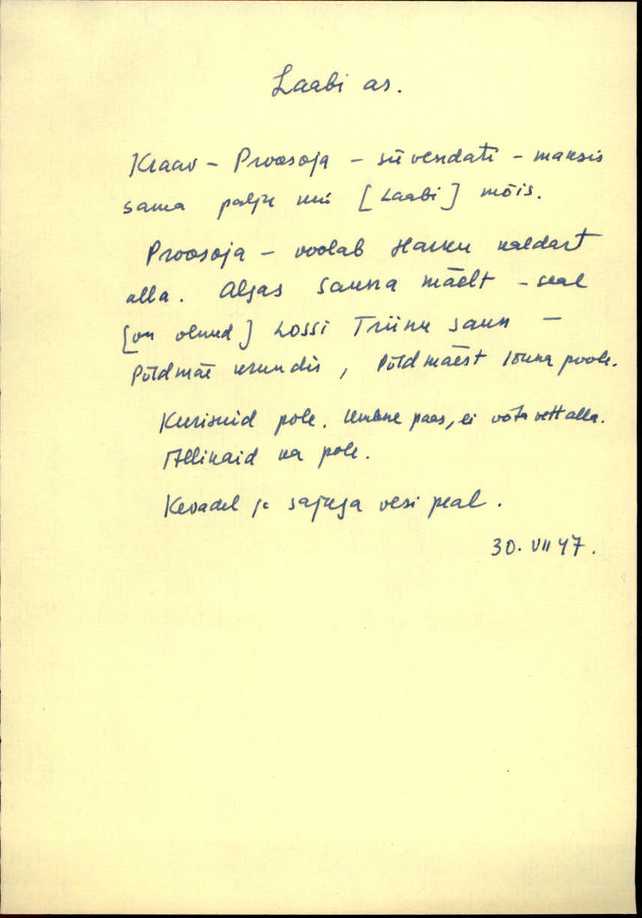 Laabi as.
Kraav – Proosoja – süvendati – maksis
sama palju kui [Laabi] mõis.
Proosoja – voolab Harku kaldast
alla. Algas Sauna mäelt – seal
[on olnud] Lossi Triinu saun –
Põldmäe krundis, Põldmäest lõuna poole.
Kurisuid pole. Umbne paas, ei võta vett alla.
Allikaid ka pole.
Kevadel ja sajuga vesi peal.
30. VII 47.